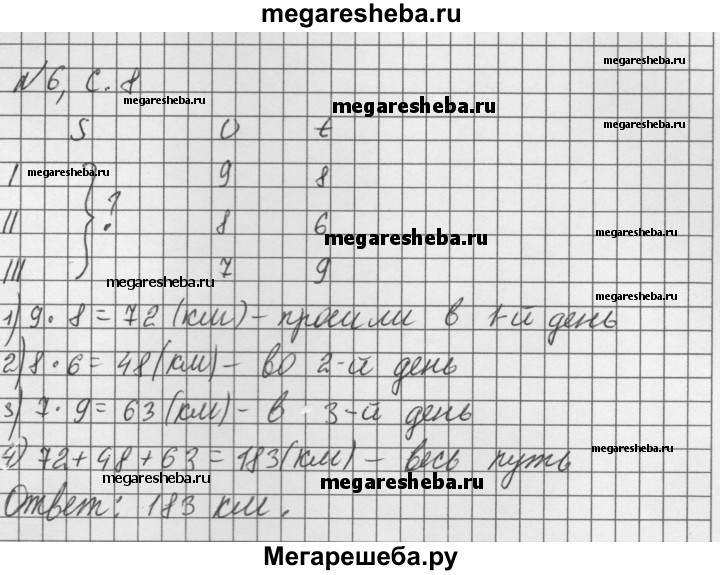 megaresheba.ru
№6, с. 8
megaresheba.ru
megaresheba.ru
megaresheba.ru
megaresheba.ru
S υ t
I 9 8
megaresheba.ru
?
II 8 6
megaresheba.ru
megaresheba.ru
III 7 9
megaresheba.ru
megaresheba.ru
1) 9 · 8 = 72 (км) – прошли в 1-й день
2) 8 · 6 = 48 (км) – во 2-й день
3) 7 · 9 = 63 (км) – в 3-й день
4) 72 + 48 + 63 = 183 (км) – весь путь
megaresheba.ru
megaresheba.ru
megaresheba.ru
Ответ: 183 км.
Мегарешеба.ру